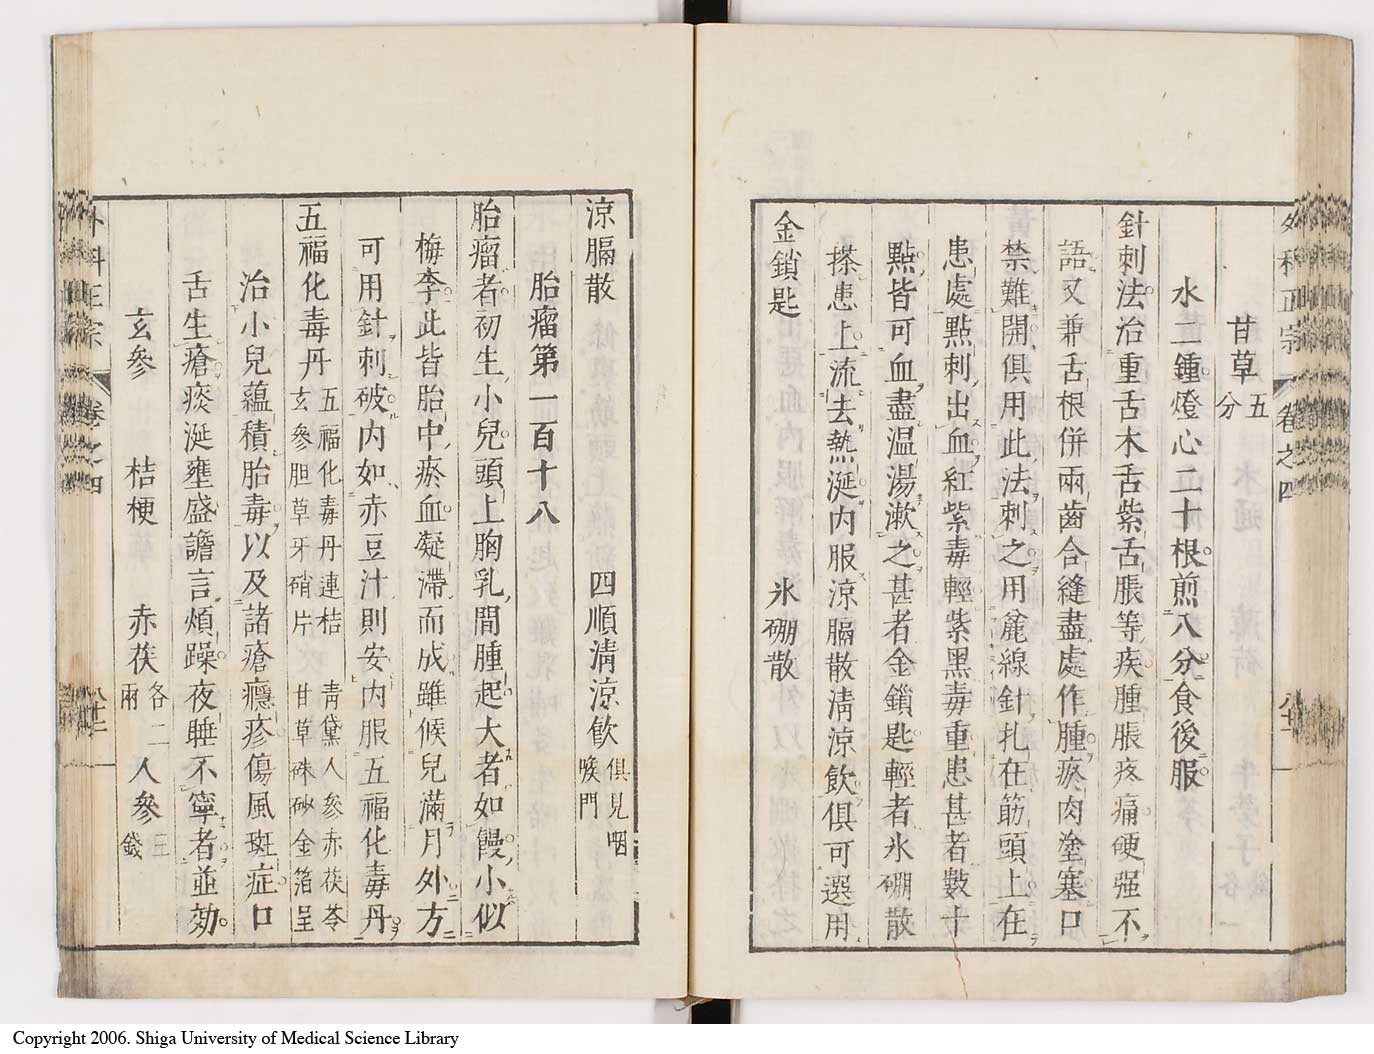 外科正宗 卷之四
甘草五分
水二鍾燈心二十根煎八分食後服
針刺法治重舌木舌紫舌脹等疾腫脹疼痛硬强不
語又兼舌根併兩齒合縫盡處作腫瘀肉塗塞口
禁難開俱用此法刺之用麄線針扎在筋頭上在
患處點刺出血紅紫毒輕紫黑毒重患甚者數十
點皆可血盡温湯漱之甚者金鎖匙輕者氷硼散
搽患上流去熱涎内服涼膈散清涼飲俱可選用
金鎖匙 氷硼散
涼膈散 四順清涼飲俱見咽喉門
胎瘤第一百十八
胎瘤者初生小兒頭上胸乳間腫起大者如饅小似
梅李此皆胎中瘀血凝滯而成雖候兒滿月外方
可用針刺破内如赤豆汁則安内服五福化毒丹
五福化毒丹 五福化毒丹連桔 青黛人參赤茯苓
玄參胆草牙硝片 甘草硃砂金箔呈
治小兒蘊積胎毒以及諸瘡癮疹傷風斑症口
舌生瘡痰涎壅盛譫言煩躁夜睡不寧者並効
玄參 桔梗 赤茯各二兩 人參三錢
外科正宗 卷之四